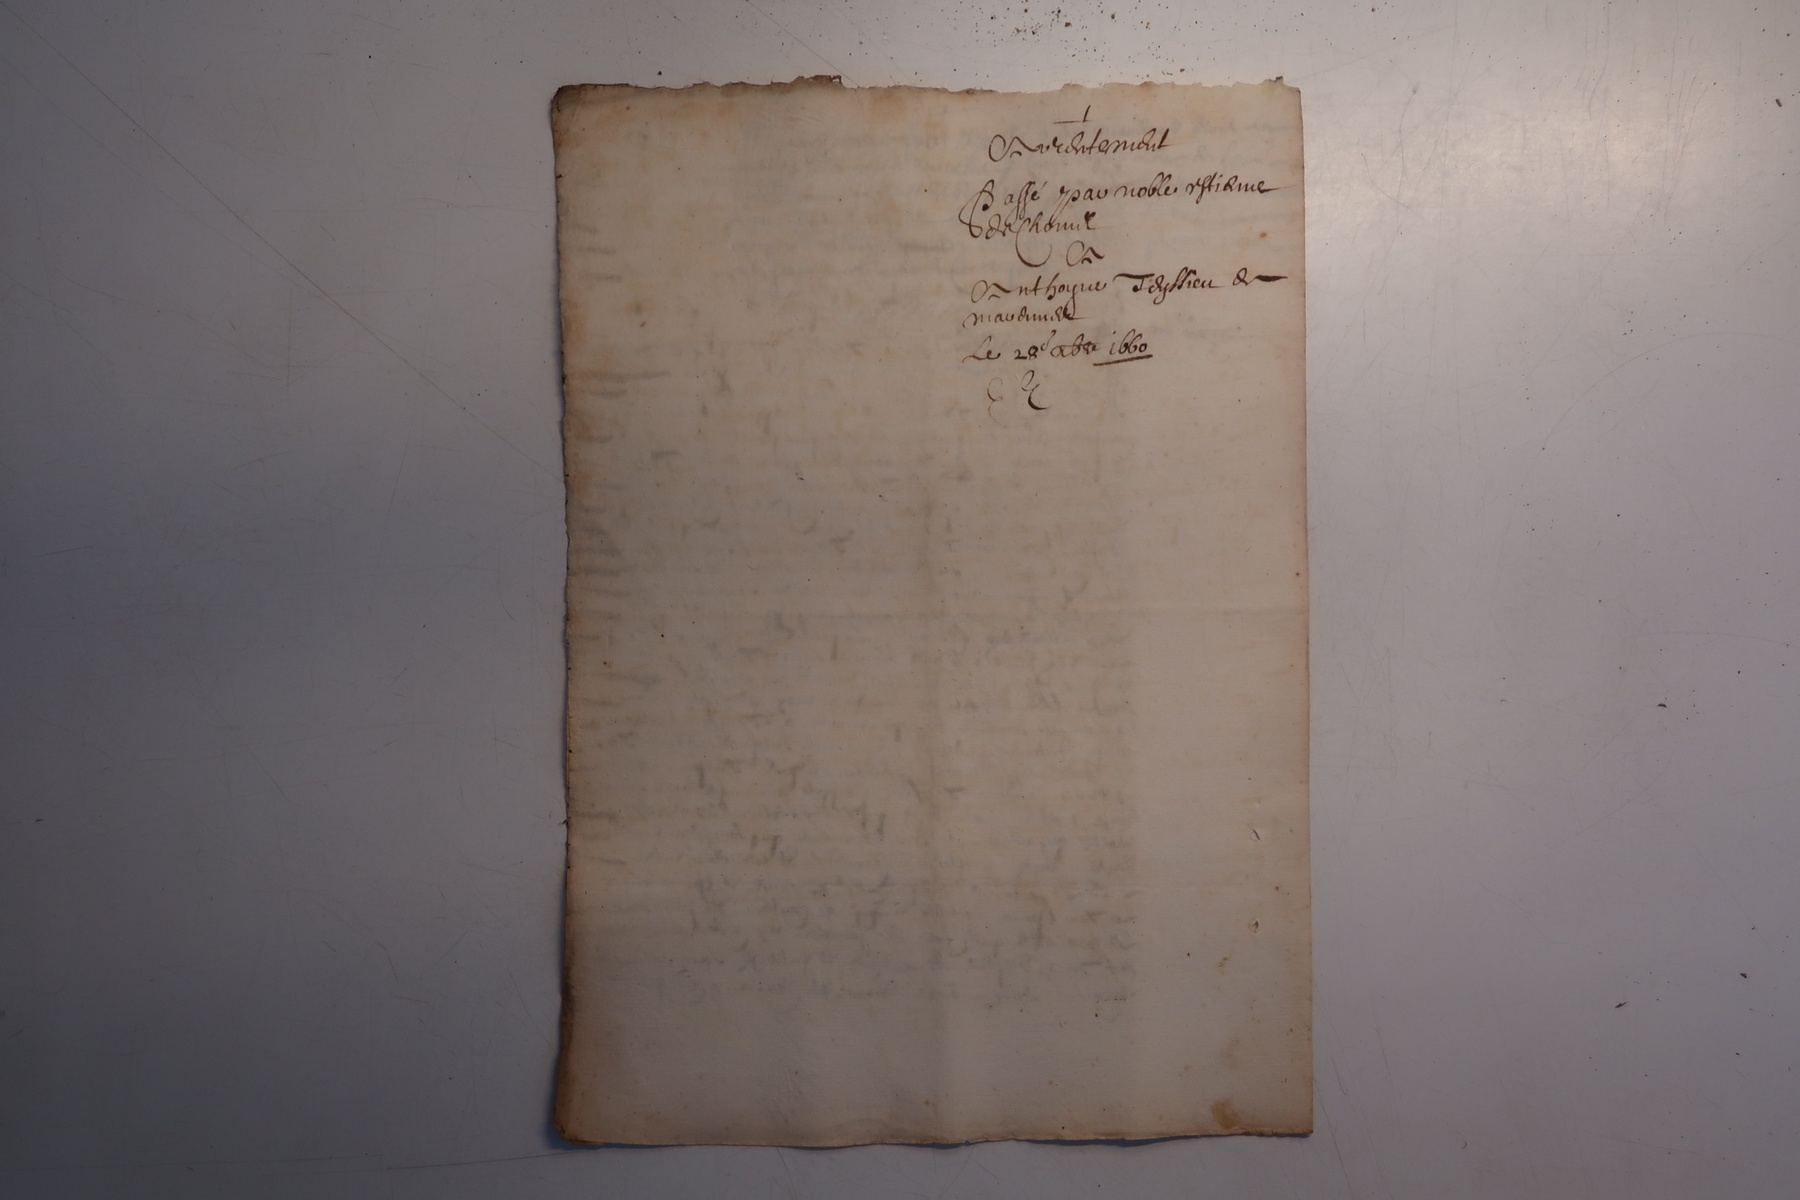 Arrentement
Passé par noble estienne
de Chomel
A
Anthoyne Teyssieu de
marennes
Le 28e xbre 1660